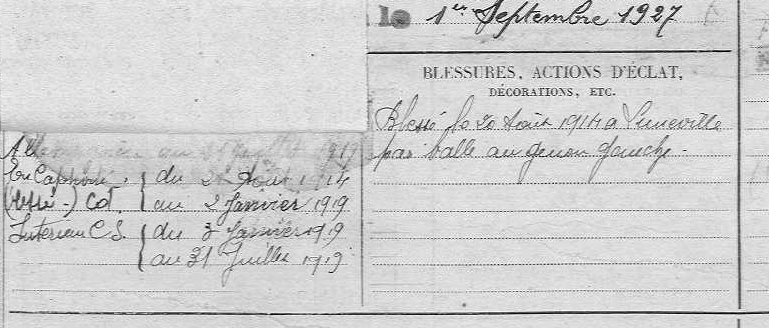 le 1er Septembre 1927
BLESSURES, ACTIONS D'ÉCLAT,
DÉCORATIONS, ETC.
Blessé le 20 Août 1914 a Luneville
par balle au genou gauche.
juillet 1919
En Captivité. du 2 Août 1914
(blessé -) Cot. au 2 Janvier 1919
Interieur C S. du 3 Janvier 1919
au 31 Juillet 1919